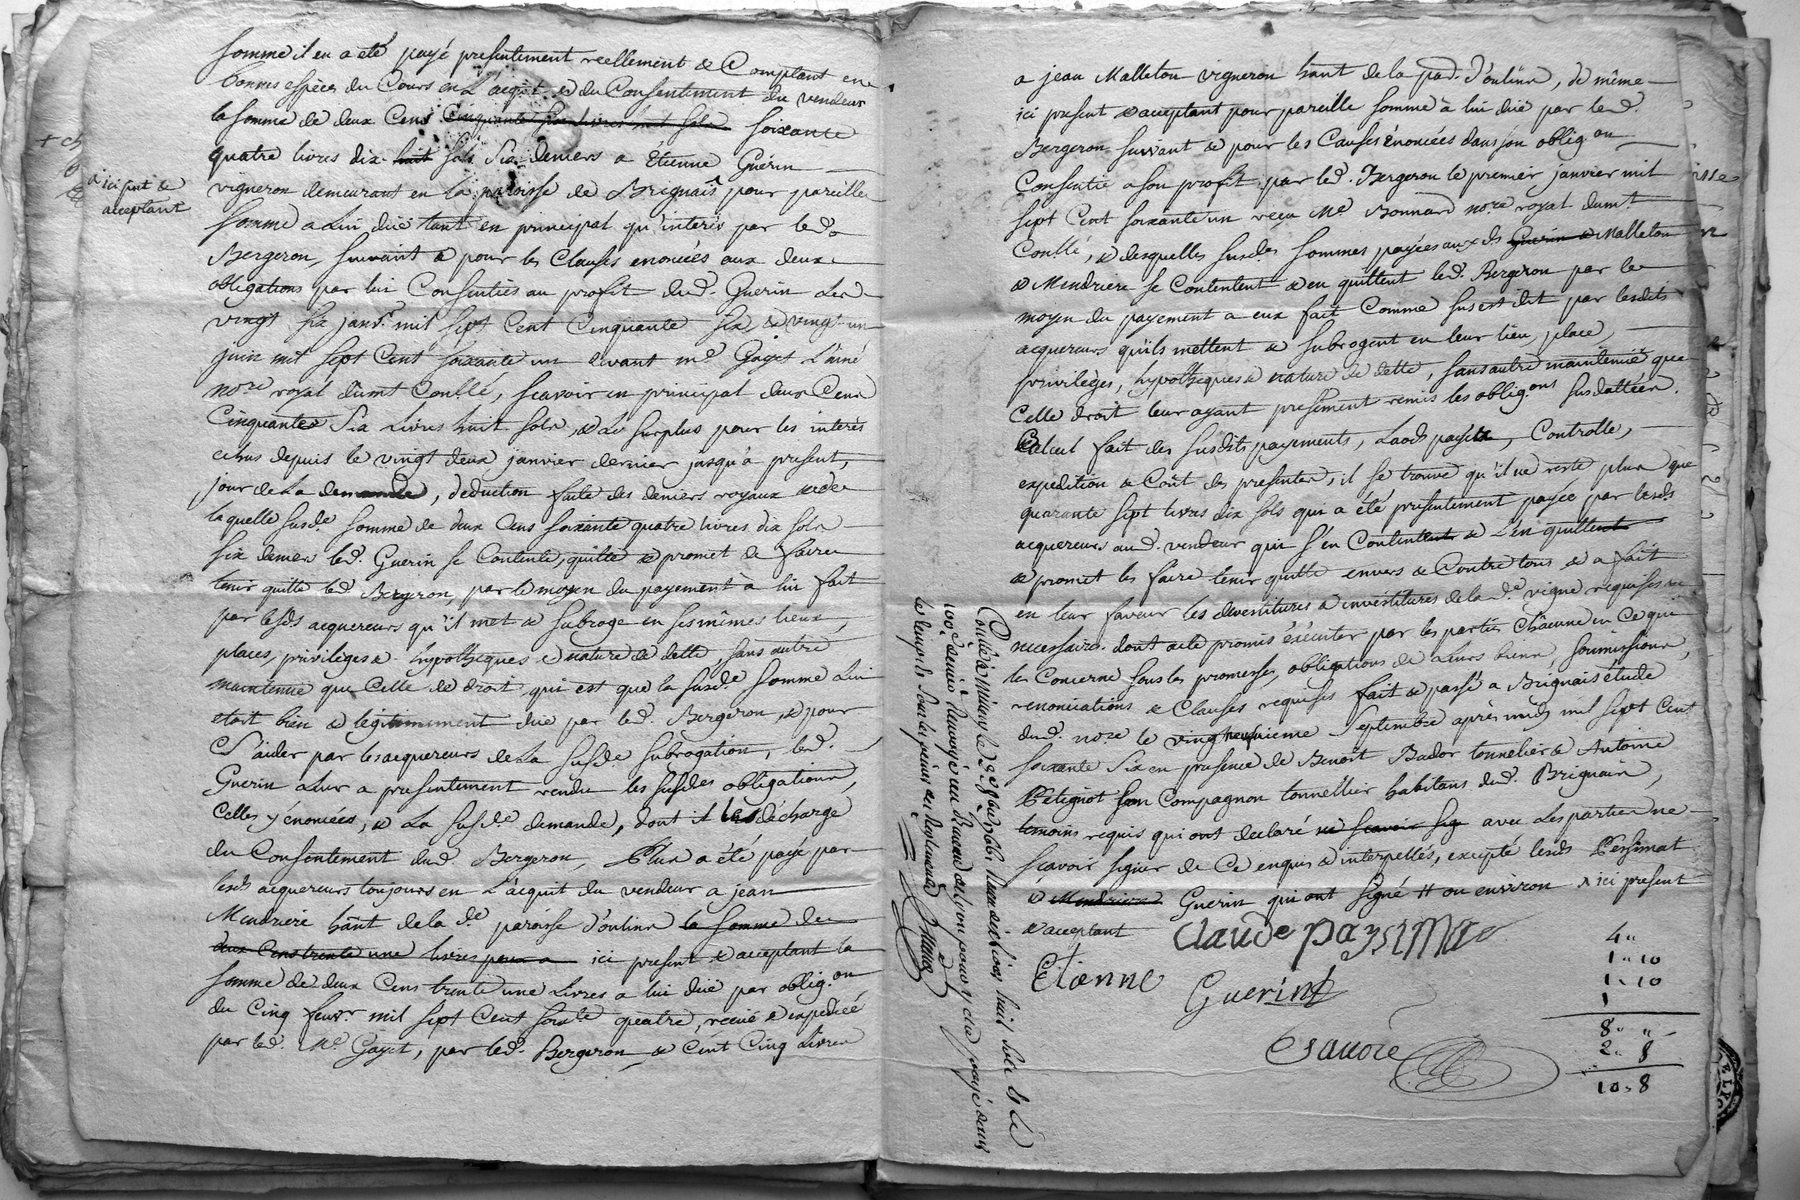 somme il en a été payé presentement reellement & Comptant en
bonnes espèces du Cours en L'acquit & du Consentement du vendeur
la somme de deux Cens Cinquante six livres huit sols soixante
quatre livres dix huit sols six deniers a Etienne Guérin
a ici pnt &
acceptant
vigneron demeurant en la paroisse de Brignais pour pareille
somme a Lui düe tant en principal qu'interès par led
Bergeron, suivant & pour les Clauses enoncées aux deux
obligations par lui Consenties au profit dud. Guerin Les
vingt six janvr. mil sept Cent Cinquante six, & vingt un
juin mil sept Cent soixante un devant me Gayet L'ainé
nore royal dumt Conllé, scavoir en principal deux Cens
Cinquante Six Livres huit sols, & Le surplus pour les interès
echus depuis le vingt deux janvier dernier jusqu'à present,
jour de La demande, déduction faite des deniers royaux & de
laquelle susde somme de deux Cens soixante quatre livres dix sols
six deniers led. Guerin se Contente, quitte & promet de faire
tenir quitte led Bergeron, par le moyen du payement à lui fait
par lesds acquereurs qu'il met & subroge en ses mêmes lieux,
places, privilèges & hypotheques & nature de dette sans autre
maintenüe que Celle de droit, qui est que la susde somme Lui
etoit bien & légitimement düe par led. Bergeron, & pour
S'aider par les acquereurs de La susde subrogation, led.
Guerin aLeur a presentement rendu les susdes obligations,
Celles y énoncées, & La susde. demande, dont il les décharge
du Consentement dud Bergeron, Plus a été payé par
lesds acquereurs toujours en L'acquit du vendeur a jean
Mendriere hânt de la de paroisse d'oulins la somme de
deux Cens trente une livres pour a ici present & acceptant la
somme de deux Cens trente une Livres a lui düe par oblig.on
du Cinq feuvr. mil sept Cent soixte quatre, recüe & expediée
par led. Me Gayet, par led. Bergeron, & Cent Cinq Livres
a jean Malleton vigneron hânt de la pad. d'oulins, de même
ici present & acceptant pour pareille somme à lui düe par led.
Bergeron suivant & pour les Causes énoncées dans son oblig.on
Consentie a son profit par led. Bergeron le premier janvier mil
sept Cent soixante un reçu Me Bonnard nore royal dumt
Conllé, & desquelles susdes sommes payées aux ds Guerin & Malleton
& Mendriere se Contentent & en quittent led. Bergeron par le
moyen du payement a eux fait Comme sus est dit par lesdits
acquereurs qu'ils mettent & subrogent en leur lieu, place,
privilèges, hypotheques & nature de dette, sans autre maintenüe que
Celle droit leur ayant presément remis les oblig.ons susdattées.
Calcul fait des susdits payements, Laods payés, Controlle,
expedition & Coût des presentes, il se trouve qu'il ne reste plus que
quarante sept livres dix sols qui a été presentement payée par lesds
acquereurs aud. vendeur qui s'en Contentent & L'en quittent
& promet les faire tenir quitte envers & Contre tous & a fait
en leur faveur les devestitures & investitures de la de vigne requises &
necessaires. dont acte promis éxécuter par les parties châcune en Ce qui
les Concerne sous les promesses, obligations de Leurs biens, soumissions,
renonciations & Clauses requises fait & passé a Brignais étude
dud. nore le vingt neufvieme Septembre après midy mil sept Cent
soixante Six en presence de Benoit Bador tonnelier & Antoine
Petignot son Compagnon tonnellier habitans dud. Brignais,
temoins requis qui ont declaré ne scavoir sig avec Les parties ne
scavoir signer de Ce enquis & interpellés, excepté lesds Peysimat
& Mendriere Guerin qui ont signé # ou environ a ici present
& acceptant Claude paysima
Etienne
Guerint
Savoie
4 "
1 " 10
1 " 10
1
8 " "
2 " 8
10 " 8